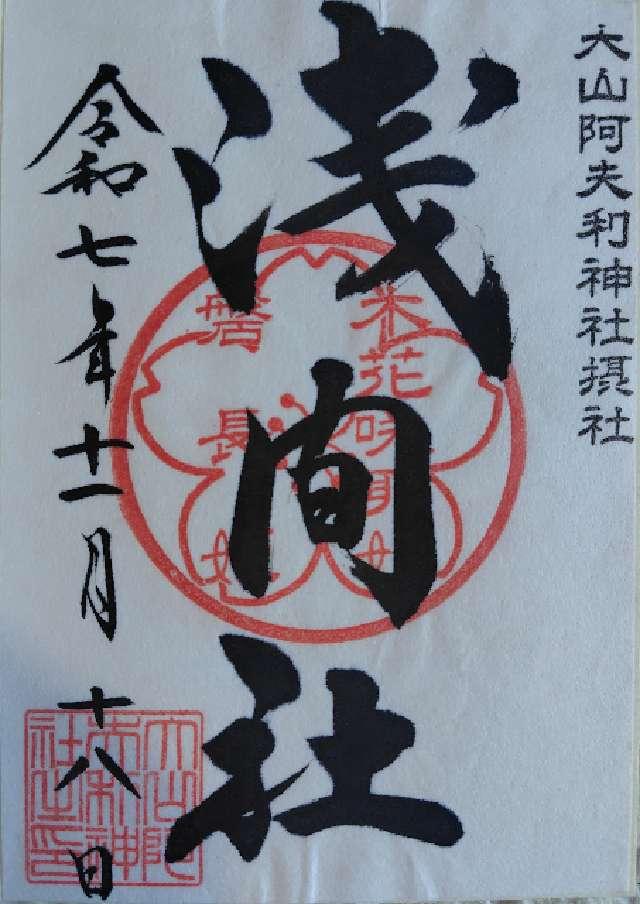 大山阿夫利神社摂社
浅间社
令和七年十一月十八日
木花咲耶姫
磐長姫
大山阿
夫利神
社之印